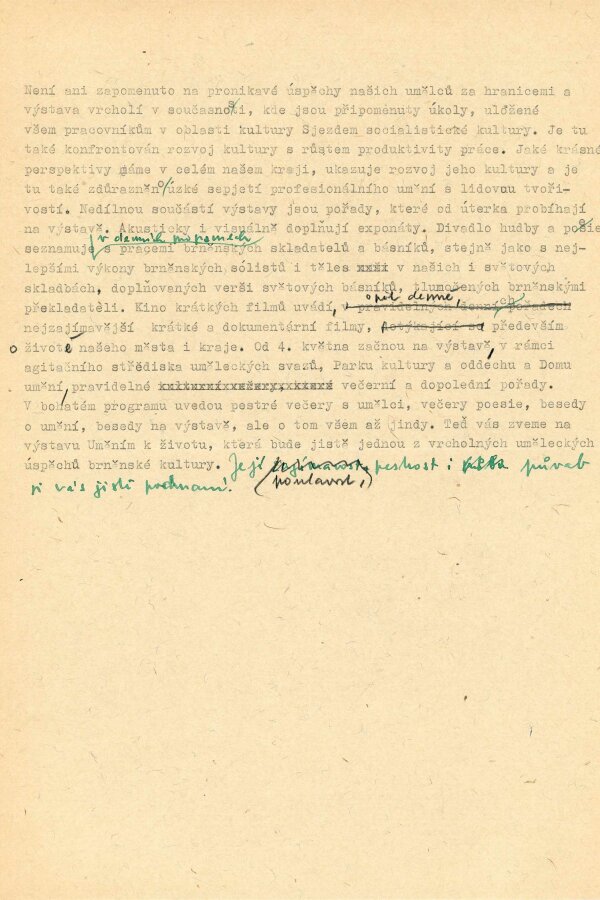 Není ani zapomenuto na pronikavé úspěchy našich umělců za hranicemi a
výstava vrcholí v současnosti, kde jsou připomenuty úkoly, uložené
všem pracovníkům v oblasti kultury Sjezdem socialistické kultury. Je tu
také konfrontován rozvoj kultury s růstem produktivity práce. Jaké krásné
perspektivy máme v celém našem kraji, ukazuje rozvoj jeho kultury a je
tu také zdůrazněno úzké sepjetí profesionálního umění s lidovou tvoři-
vostí. Nedílnou součástí výstavy jsou pořady, které od úterka probíhají
na výstavě. Akusticky i visuálně doplňují exponáty. Divadlo hudby a poesie
v denních programech
seznamuje s pracemi brněnských skladatelů a básníků, stejně jako s nej-
lepšími výkony brněnských sólistů i těles xxxi v našich i světových
skladbách, doplňovaných verši světových básníků, tlumočených brněnskými
opět denně,
překladateli. Kino krátkých filmů uvádí, v pravidelných denních pořadech
nejzajímavější krátké a dokumentární filmy, dotýkající se především
života našeho města i kraje. Od 4. května začnou na výstavě, v rámci
agitačního střediska uměleckých svazů, Parku kultury a oddechu a Domu
umění, pravidelné večerní a dopolední pořady.
V bohatém programu uvedou pestré večery s umělci, večery poesie, besedy
o umění, besedy na výstavě, ale o tom všem až jindy. Teď vás zveme na
výstavu Uměním k životu, která bude jistě jednou z vrcholných uměleckých
úspěchů brněnské kultury. Její pestrost i půvab
si vás jistě podmaní. (poutavost,)